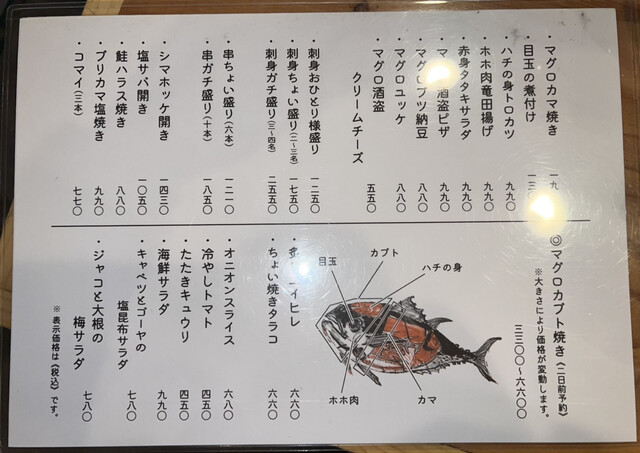 ・マグロカマ焼き
・目玉の煮付け 一三
・ハチの身トロカツ 九九〇
・ホホ肉竜田揚げ 九九〇
・赤身タタキサラダ 九九〇
・マ 酒盗ピザ 九九〇
・マグロブツ納豆 八八〇
・マグロユッケ 八八〇
・マグロ酒盗
クリームチーズ 五五〇
・刺身おひとり様盛り 一二五〇
・刺身ちょい盛り（二~三名） 一七五〇
・刺身ガチ盛り（三~四名） 二五五〇
・串ちょい盛り（六本） 一二一〇
・串ガチ盛り（十本） 一八五〇
・シマホッケ開き 一四三〇
・塩サバ開き 一〇五〇
・鮭ハラス焼き 八八〇
・ブリカマ塩焼き 九九〇
・コマイ（三本） 七七〇
◎マグロカブト焼き（二日前予約）
※大きさにより価格が変動します。
三三〇〇~六六〇〇
カブト
ハチの身
目玉
ホホ肉
カマ
イヒレ 六六〇
・ちょい焼きタラコ 六六〇
・オニオンスライス 六八〇
・冷やしトマト 四五〇
・たたきキュウリ 四五〇
・海鮮サラダ 九九〇
・キャベツとゴーヤの
塩昆布サラダ 七八〇
・ジャコと大根の
梅サラダ 七八〇
※表示価格は（税込）です。